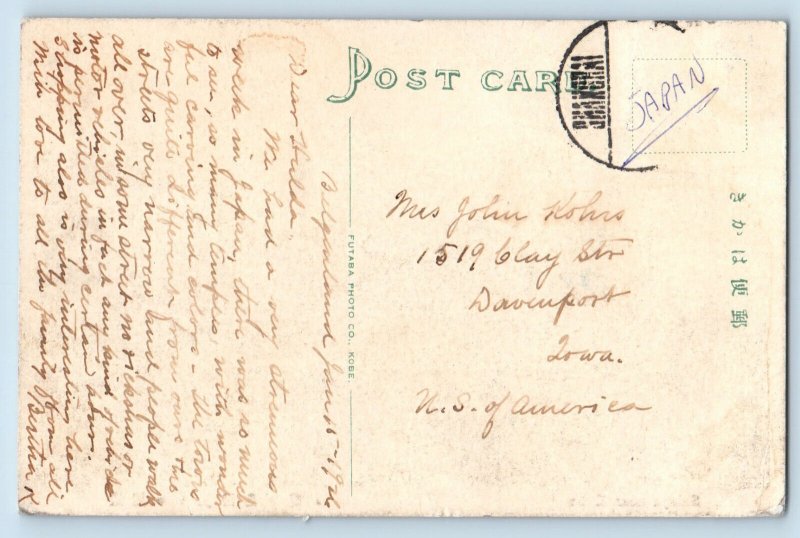 POST CARD
SHANGHAI
JAPAN
Belgenland Jan 15-1926
Dear Hulda.
We had a very strenuous
week in Japan, there was so much
to see, so many temples, with wonder
ful carving and colors - the towns
are quite different from ours the
streets very narrow and people walk
all over, in some streets no rickshas or
motor vehicles in fact any kind of vehicle
is permitted during certain hours.
Shopping also is very interesting here
With love to all the family from all
Bertha K
FUTABA PHOTO CO., KOBE.
Mrs John Kohrs
1519 Clay Str
Davenport
Iowa.
U.S. of America
きかは便郵